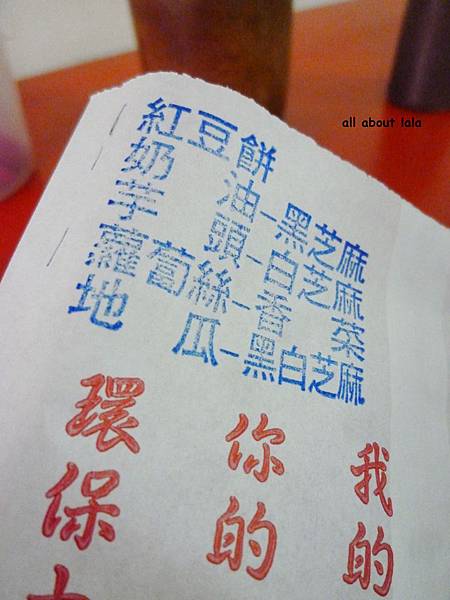 all about lala
紅豆餅
奶油-黑芝麻
芋頭-白芝麻
蘿蔔絲-香菜
地瓜-黑白芝麻
我的
你的
環保